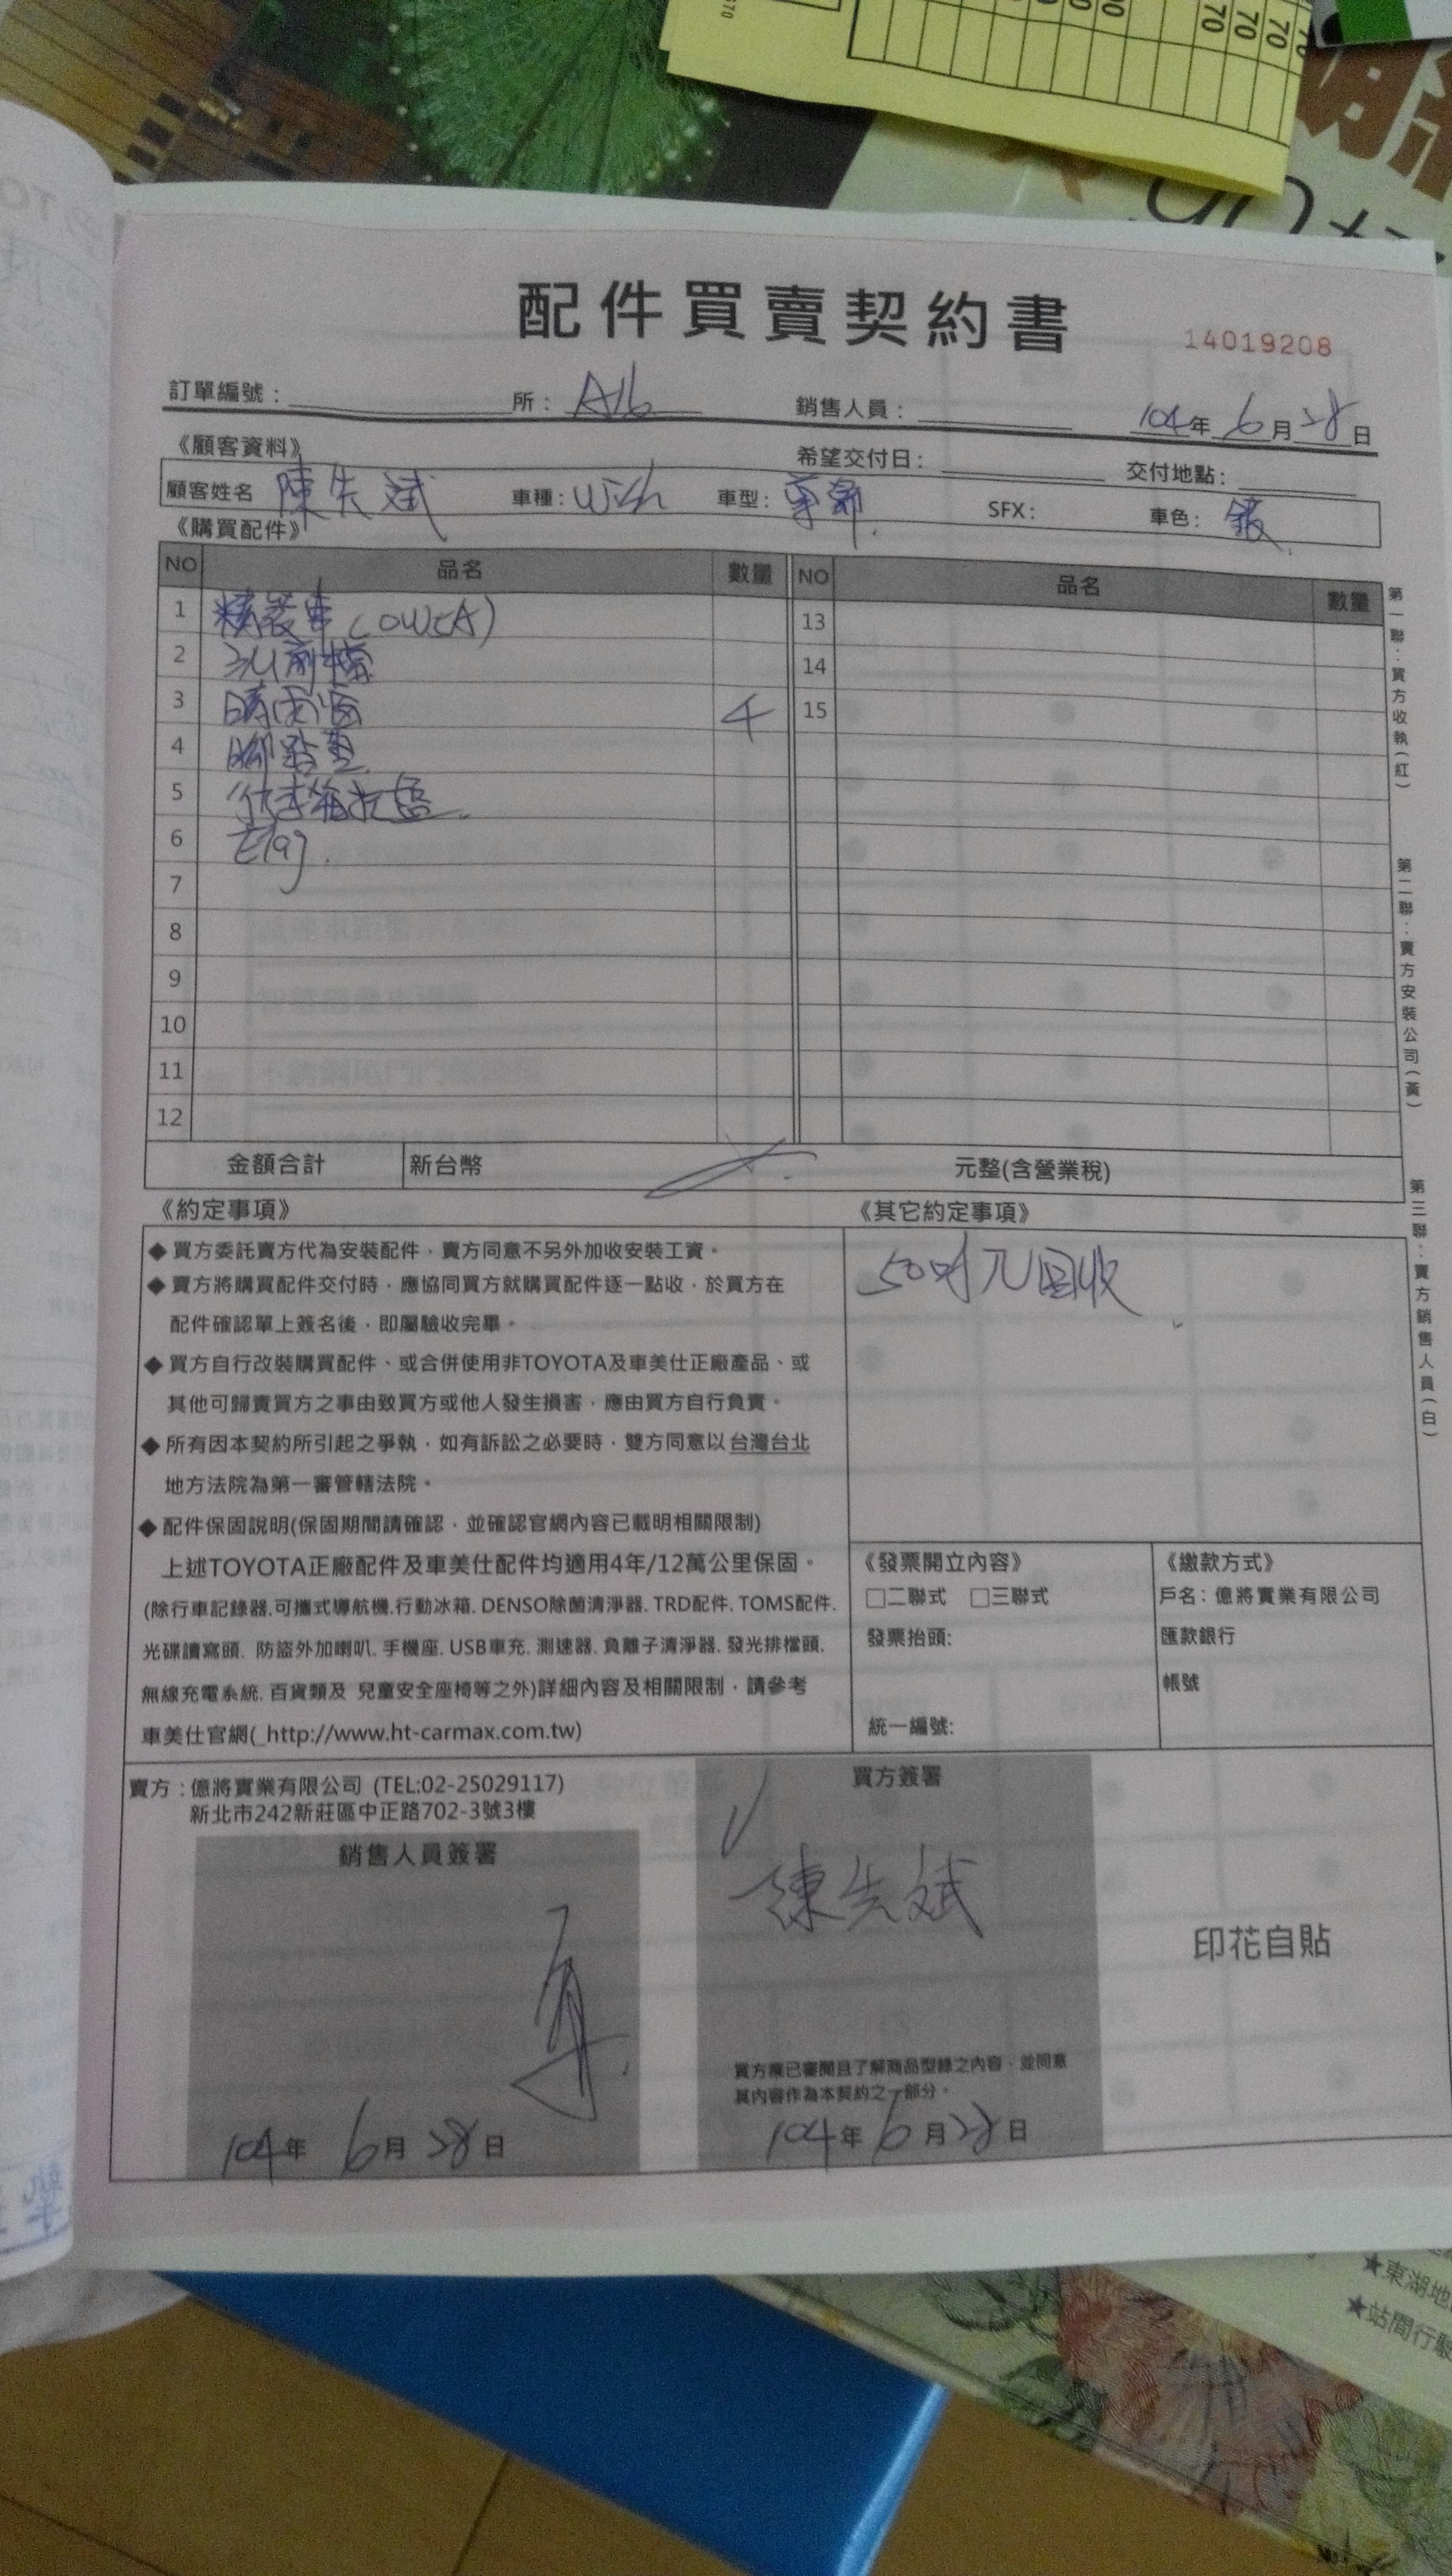 配件買賣契約書
14019208
訂單編號： 所：A16 銷售人員： 104年6月28日
《顧客資料》 希望交付日： 交付地點：
顧客姓名 陳先斌 車種：Wish 車型：尊爵 SFX： 車色：銀
《購買配件》
NO 品名 數量 NO 品名 數量
1 精裝車(OWCA) 13
2 3M前檔 14
3 晴雨窗 4 15
4 腳踏墊
5 行李箱
6 Etag.
7
8
9
10
11
12
金額合計 新台幣 元整(含營業稅)
第一聯：買方收執(紅)
第二聯：賣方安裝公司(黃)
第三聯：賣方銷售人員(白)
《約定事項》
◆買方委託賣方代為安裝配件，賣方同意不另外加收安裝工資。
◆賣方將購買配件交付時，應協同買方就購買配件逐一點收，於買方在
配件確認單上簽名後，即屬驗收完畢。
◆買方自行改裝購買配件、或合併使用非TOYOTA及車美仕正廠產品、或
其他可歸責買方之事由致買方或他人發生損害，應由買方自行負責。
◆所有因本契約所引起之爭執，如有訴訟之必要時，雙方同意以台灣台北
地方法院為第一審管轄法院。
◆配件保固說明(保固期間請確認，並確認官網內容已載明相關限制)
上述TOYOTA正廠配件及車美仕配件均適用4年/12萬公里保固。
(除行車記錄器.可攜式導航機.行動冰箱. DENSO除菌清淨器. TRD配件. TOMS配件.
光碟讀寫頭. 防盜外加喇叭. 手機座. USB車充. 測速器. 負離子清淨器. 發光排檔頭.
無線充電系統. 百貨類及 兒童安全座椅等之外)詳細內容及相關限制，請參考
車美仕官網(_http://www.ht-carmax.com.tw)
《其它約定事項》
回收
《發票開立內容》
□二聯式 □三聯式
發票抬頭:
統一編號:
《繳款方式》
戶名：億將實業有限公司
匯款銀行
帳號
賣方：億將實業有限公司 (TEL:02-25029117)
新北市242新莊區中正路702-3號3樓
銷售人員簽署
104年6月28日
買方簽署
陳先斌
買方業已審閱且了解商品型錄之內容，並同意
其內容作為本契約之一部分。
104年6月28日
印花自貼
70
70
70
★東湖地
★站間行駛